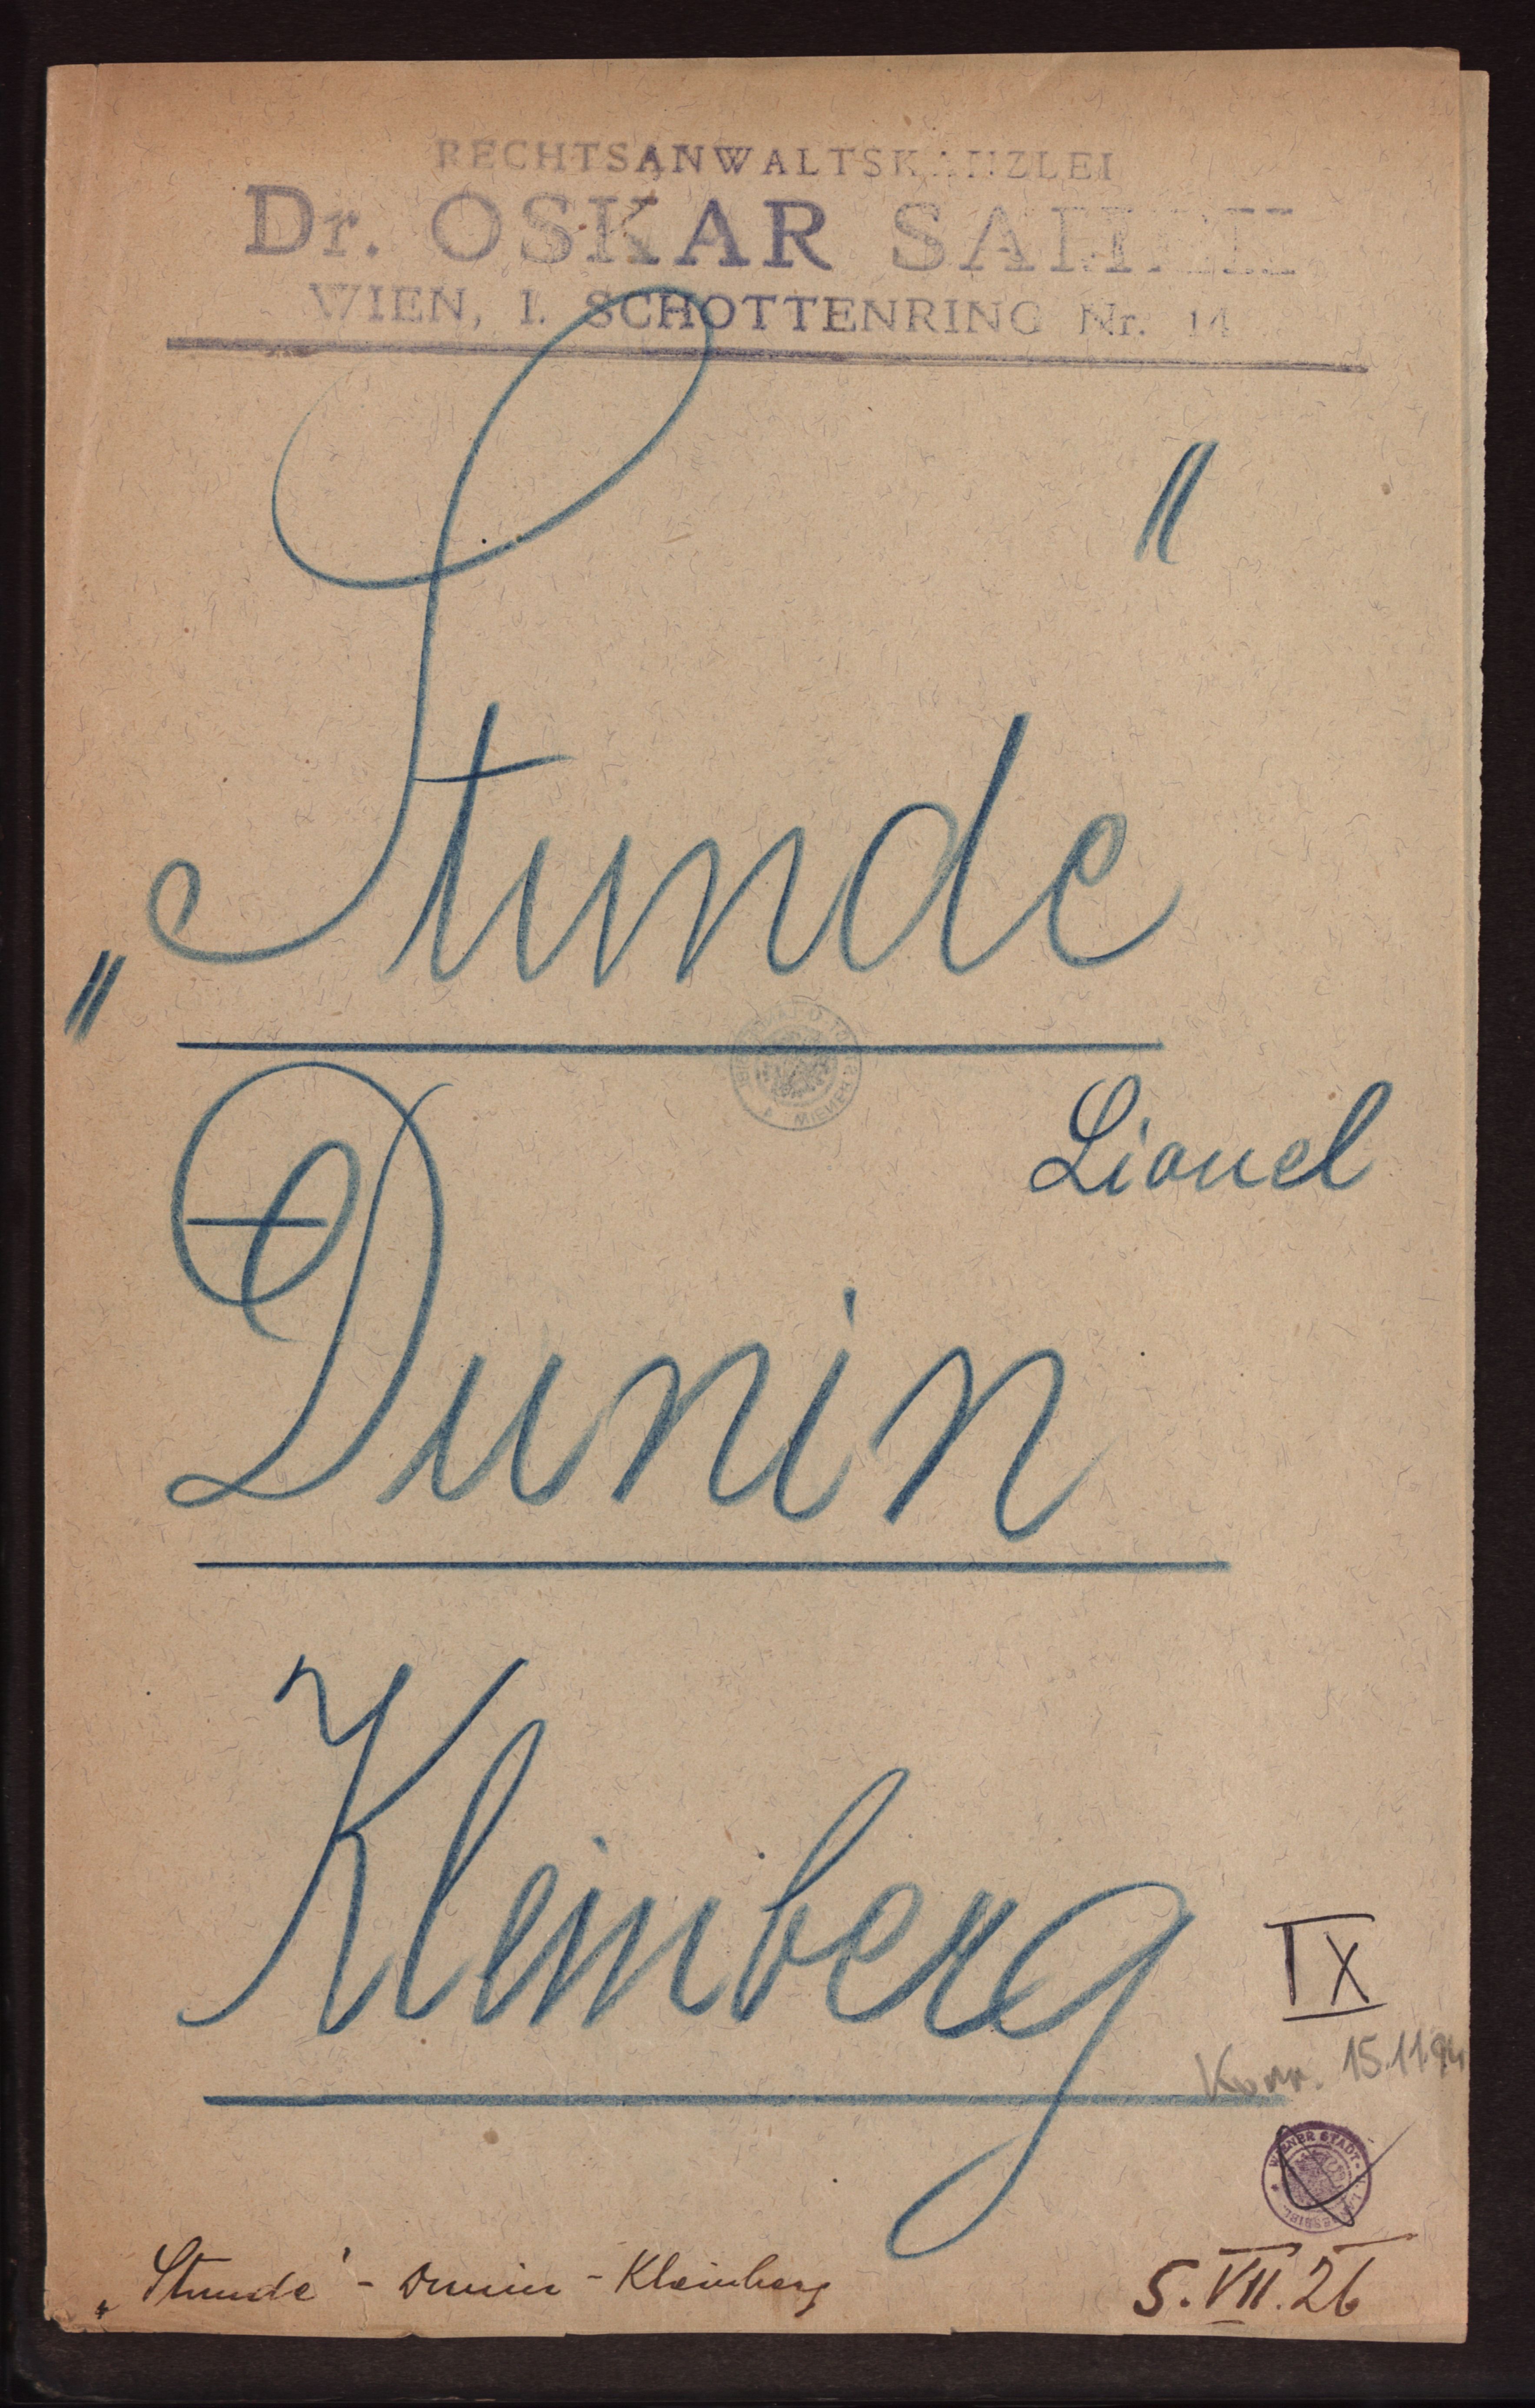 RECHTSANWALTSKANZLEI
Dr. OSKAR SAMEK
WIEN, I. SCHOTTENRING Nr. 14
„Stunde"
Lionel
Dunin
Kleinberg
IX
Korr. 15.11.94
WIENER STADT-
„Stunde" - Dunin - Kleinberg
5. VII. 26